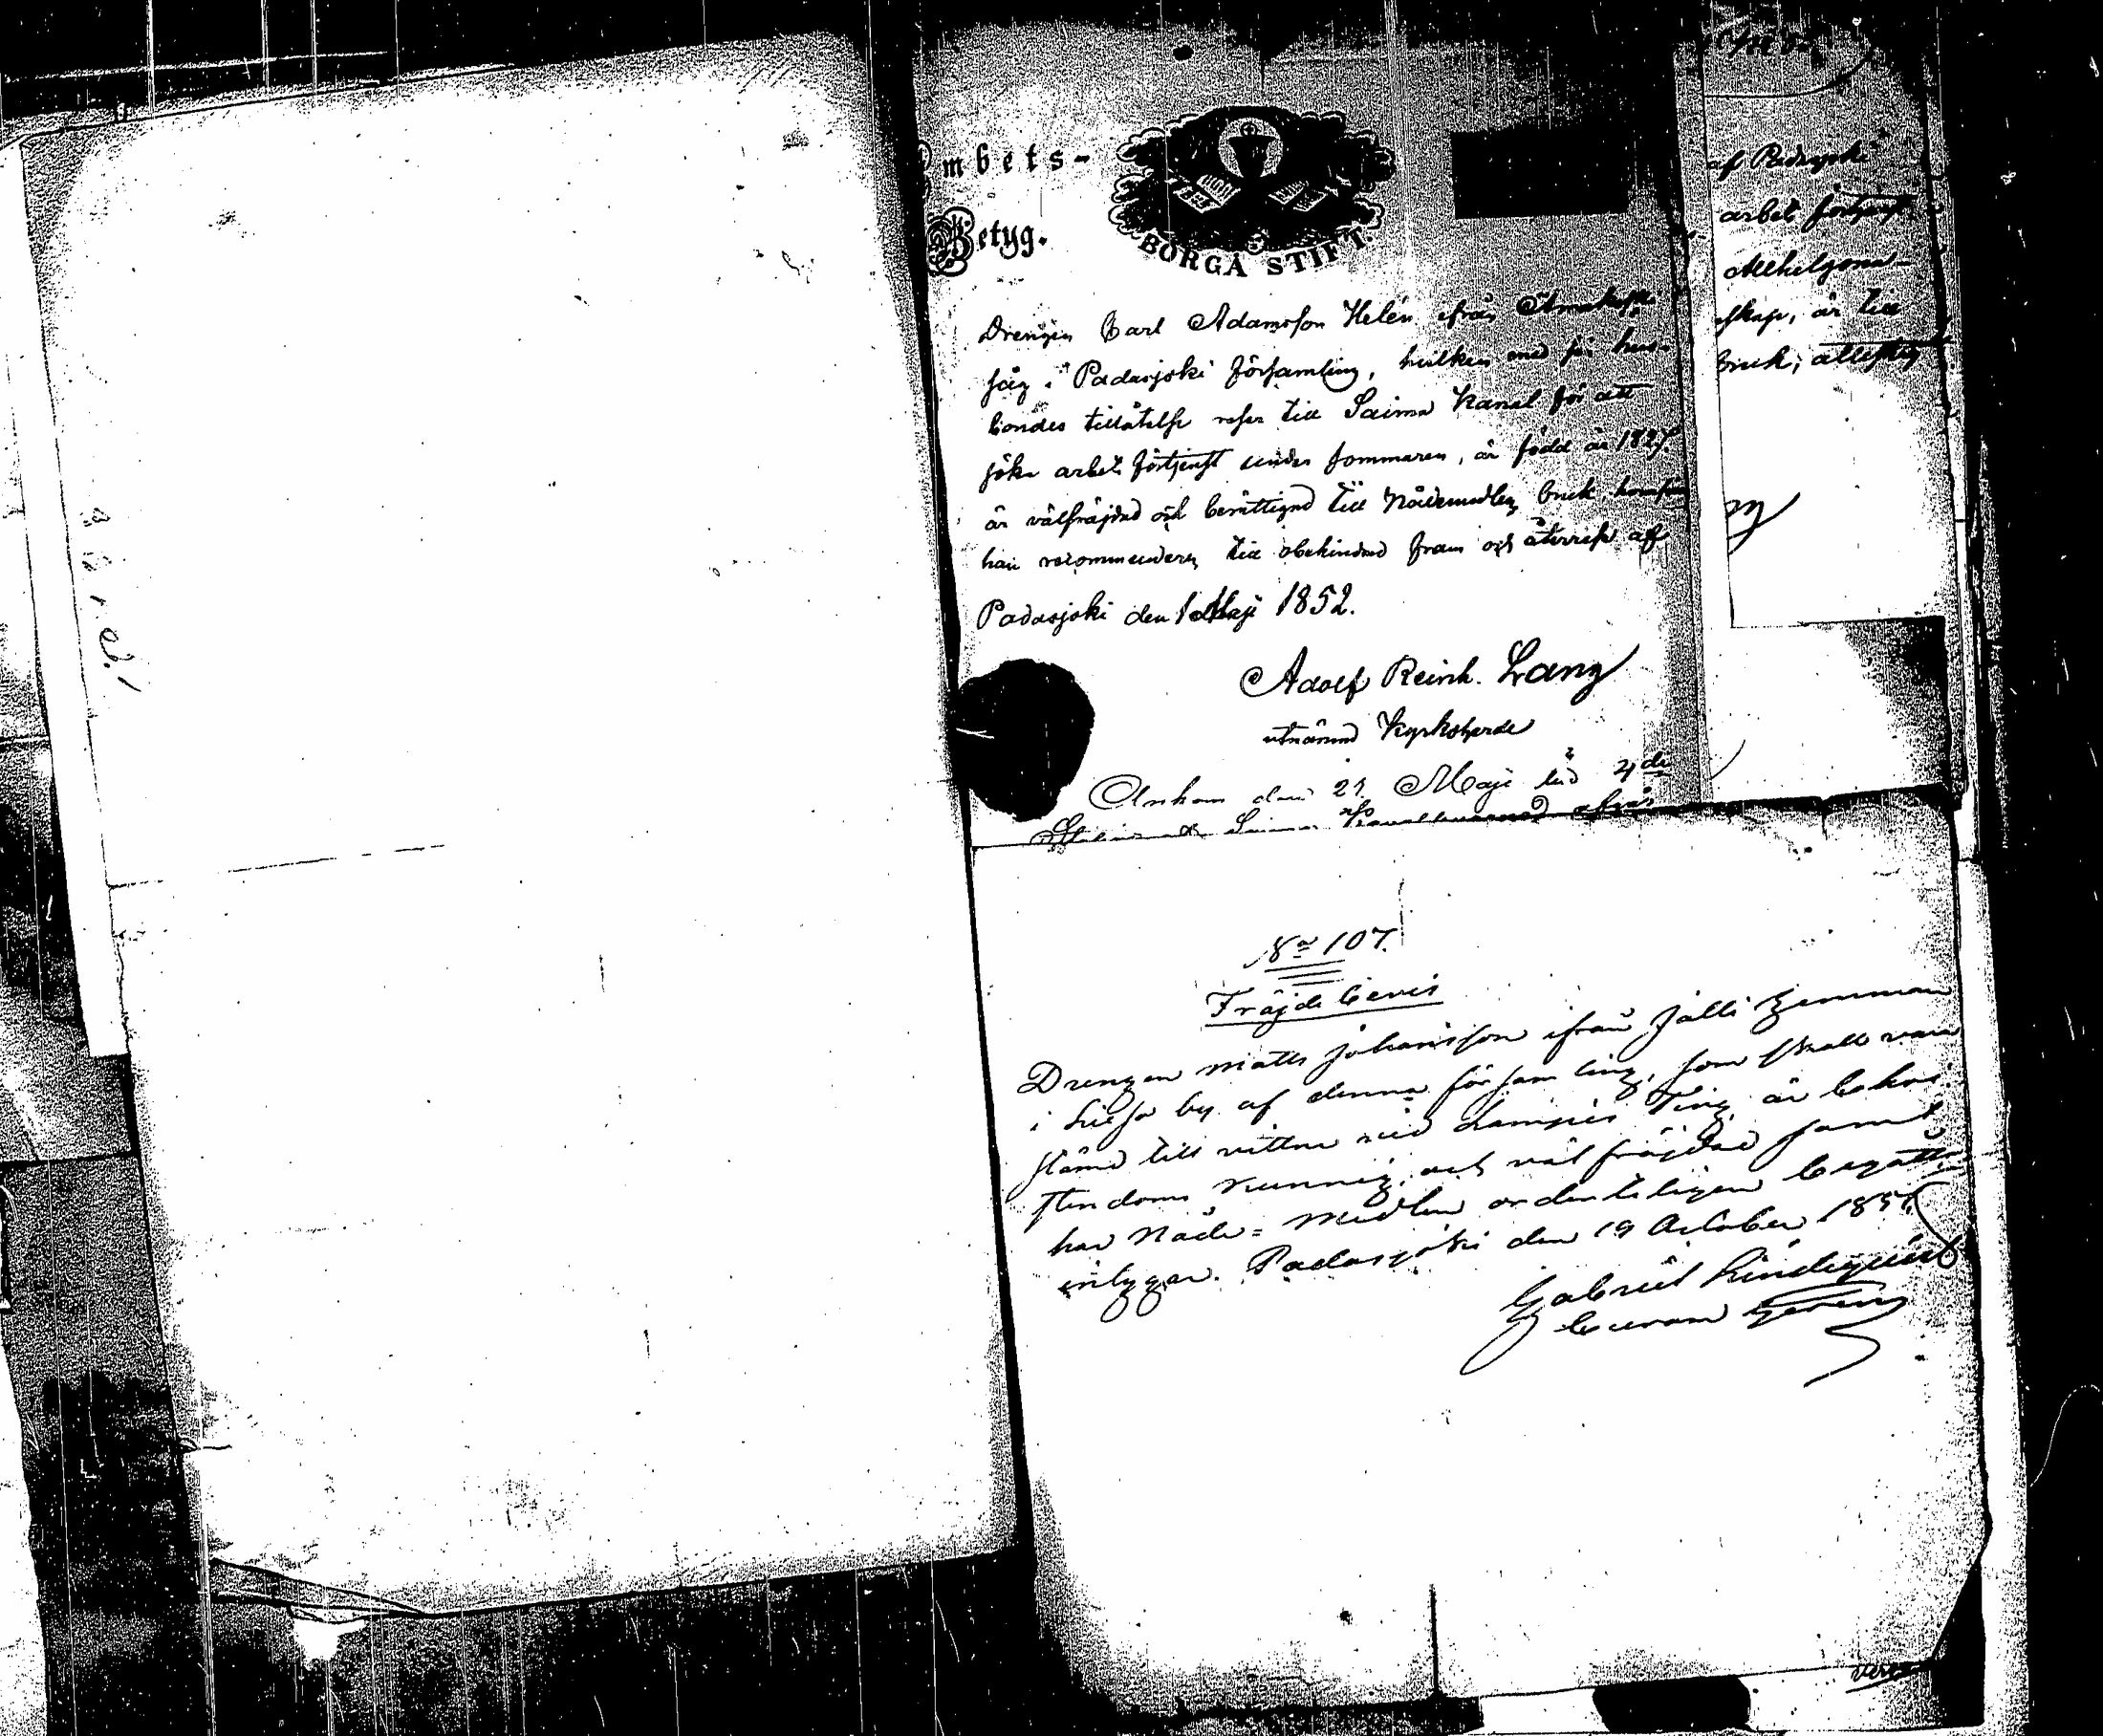 Embets-
Betyg.
BORGÅ STIFT.
Drengen Carl Adamsson Helén ifrån
såg i Padasjoki församling, hvilken med sin hus-
bondes tillåtelse reser till Saima Kanal för att
söka arbets förtjenst under sommaren, är född år 1827.
är välfräjdad och berättigad till Nådemedlens bruk,
han recommenderas till obehindrad fram och återresa af
Padasjoki den 1 Maji 1852.
Adolf Reinh. Lang
utnämnd Kyrkoherde
Ankom den 21 Maji till 4de
Saima
af Padasjoki
arbets förtjenst
Allhelgona-
skap, är till
bruk, attest
No 107.
Fräjde bevis
Drengen Matts Johansson ifrån Jälli hemman
i by af denna församling, som skall vara
stämd till vittne vid Lampis Ting, är
stendoms kunnig, och väl fräjdad samt
har Nåde-Medlen ordenteligen begått
intygar. Padasjoki den 19 October
Gabriel Lindequist